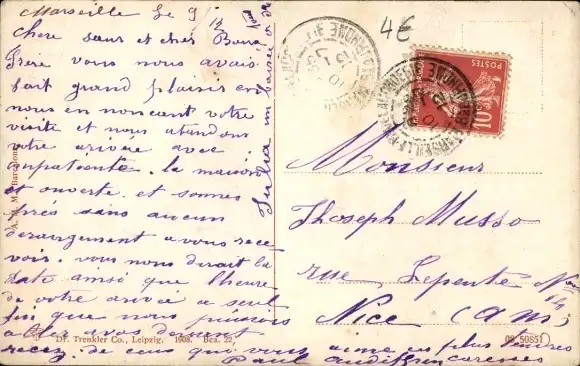 Marseille le 9/12
Chere Sœur et cher Beau
Frere vous nous avais
fait grand plaisir en
nous en noncant votre
visite et nous atandons
votre arivée avec
impatiente. la maison
et ouverte. et somes
prés sans aucun
derangement a vous rece
voir. vous nous dirait la
date ainsi que lheure
de votre arivée a seul
fin que nous puisions
aller avos devant
recez. de ceus qui vous aime les plus tendres
Paul caresses
Julia un baisée
4€
POSTES
10
Monsieur
Thoseph Musso
rue Lepente No
Nice (A m)
Dr. Trenkler Co., Leipzig. 1908. Bca. 22.
08 50851